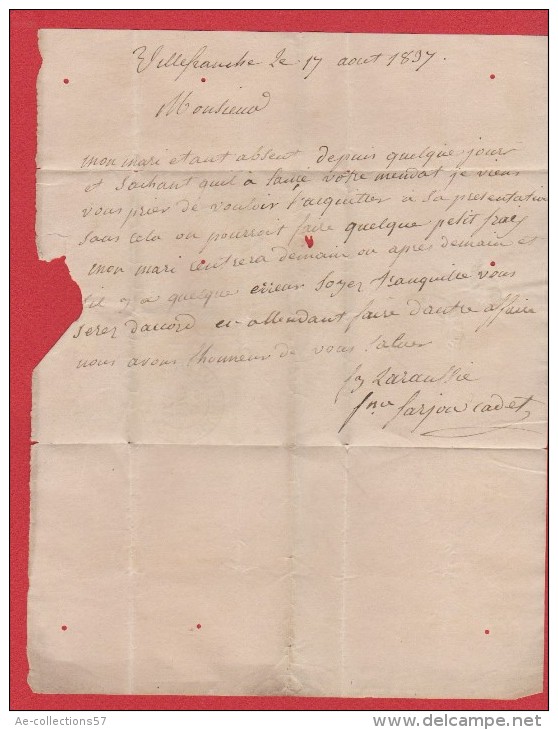 Villefranche le 17 aout 1837.
Monsieur
mon mari etant absent depuis quelque jour
et sachant quil à laire votre mendat je viens
vous prier de vouloir l'acquitter a sa presentation
sans cela on pourroit faire quelque petit frais
mon mari rentrera demain ou après demain et
sil y a quelque erieur soyez tranquille vous
serez daccord en attendant faire dautre affaire
nous avons lhonneur de vous saluer
fme farjon cadet
Ae-collections57
delcampe.net